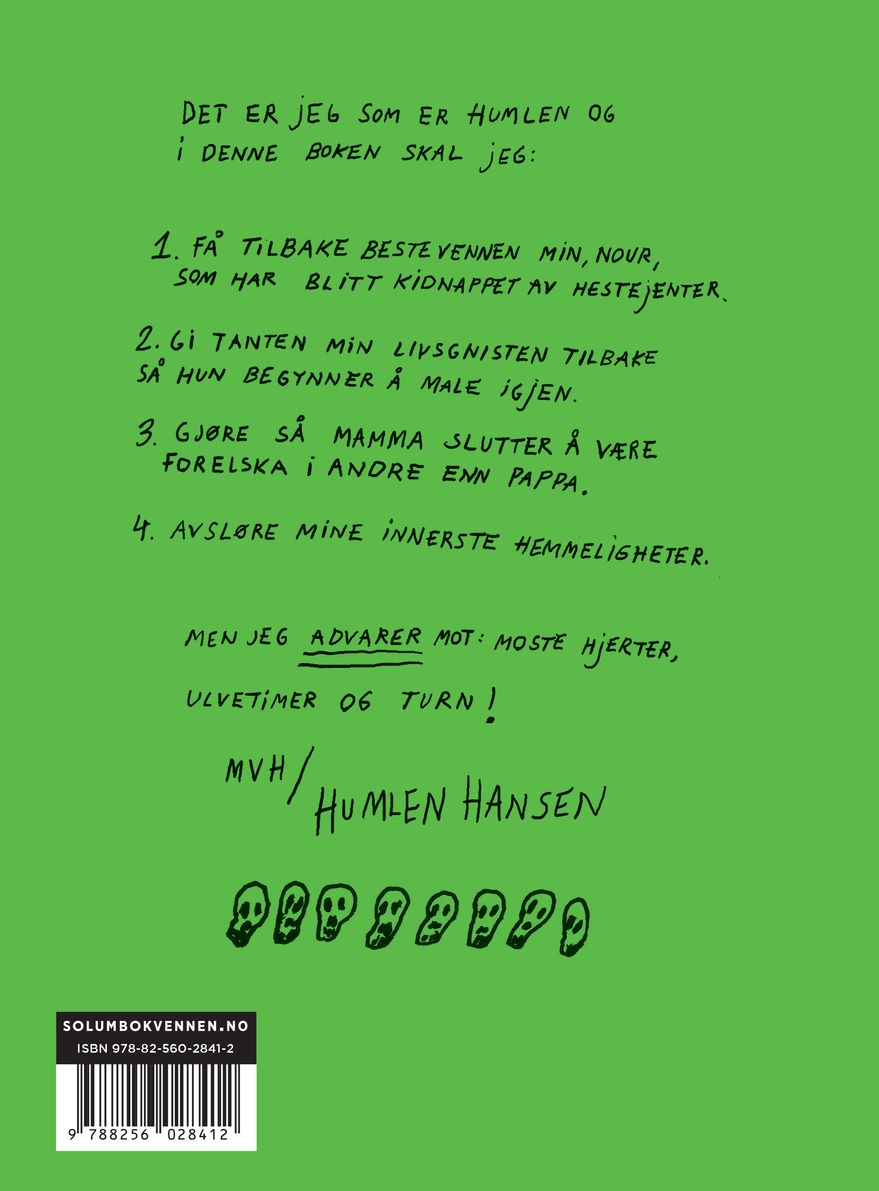 DET ER JEG SOM ER HUMLEN OG
I DENNE BOKEN SKAL JEG:
1. FÅ TILBAKE BESTEVENNEN MIN, NOUR,
SOM HAR BLITT KIDNAPPET AV HESTEJENTER.
2. GI TANTEN MIN LIVSGNISTEN TILBAKE
SÅ HUN BEGYNNER Å MALE IGJEN.
3. GJØRE SÅ MAMMA SLUTTER Å VÆRE
FORELSKA I ANDRE ENN PAPPA.
4. AVSLØRE MINE INNERSTE HEMMELIGHETER.
MEN JEG ADVARER MOT: MOSTE HJERTER,
ULVETIMER OG TURN!
MVH/
HUMLEN HANSEN
SOLUMBOKVENNEN.NO
ISBN 978-82-560-2841-2
9 788256 028412